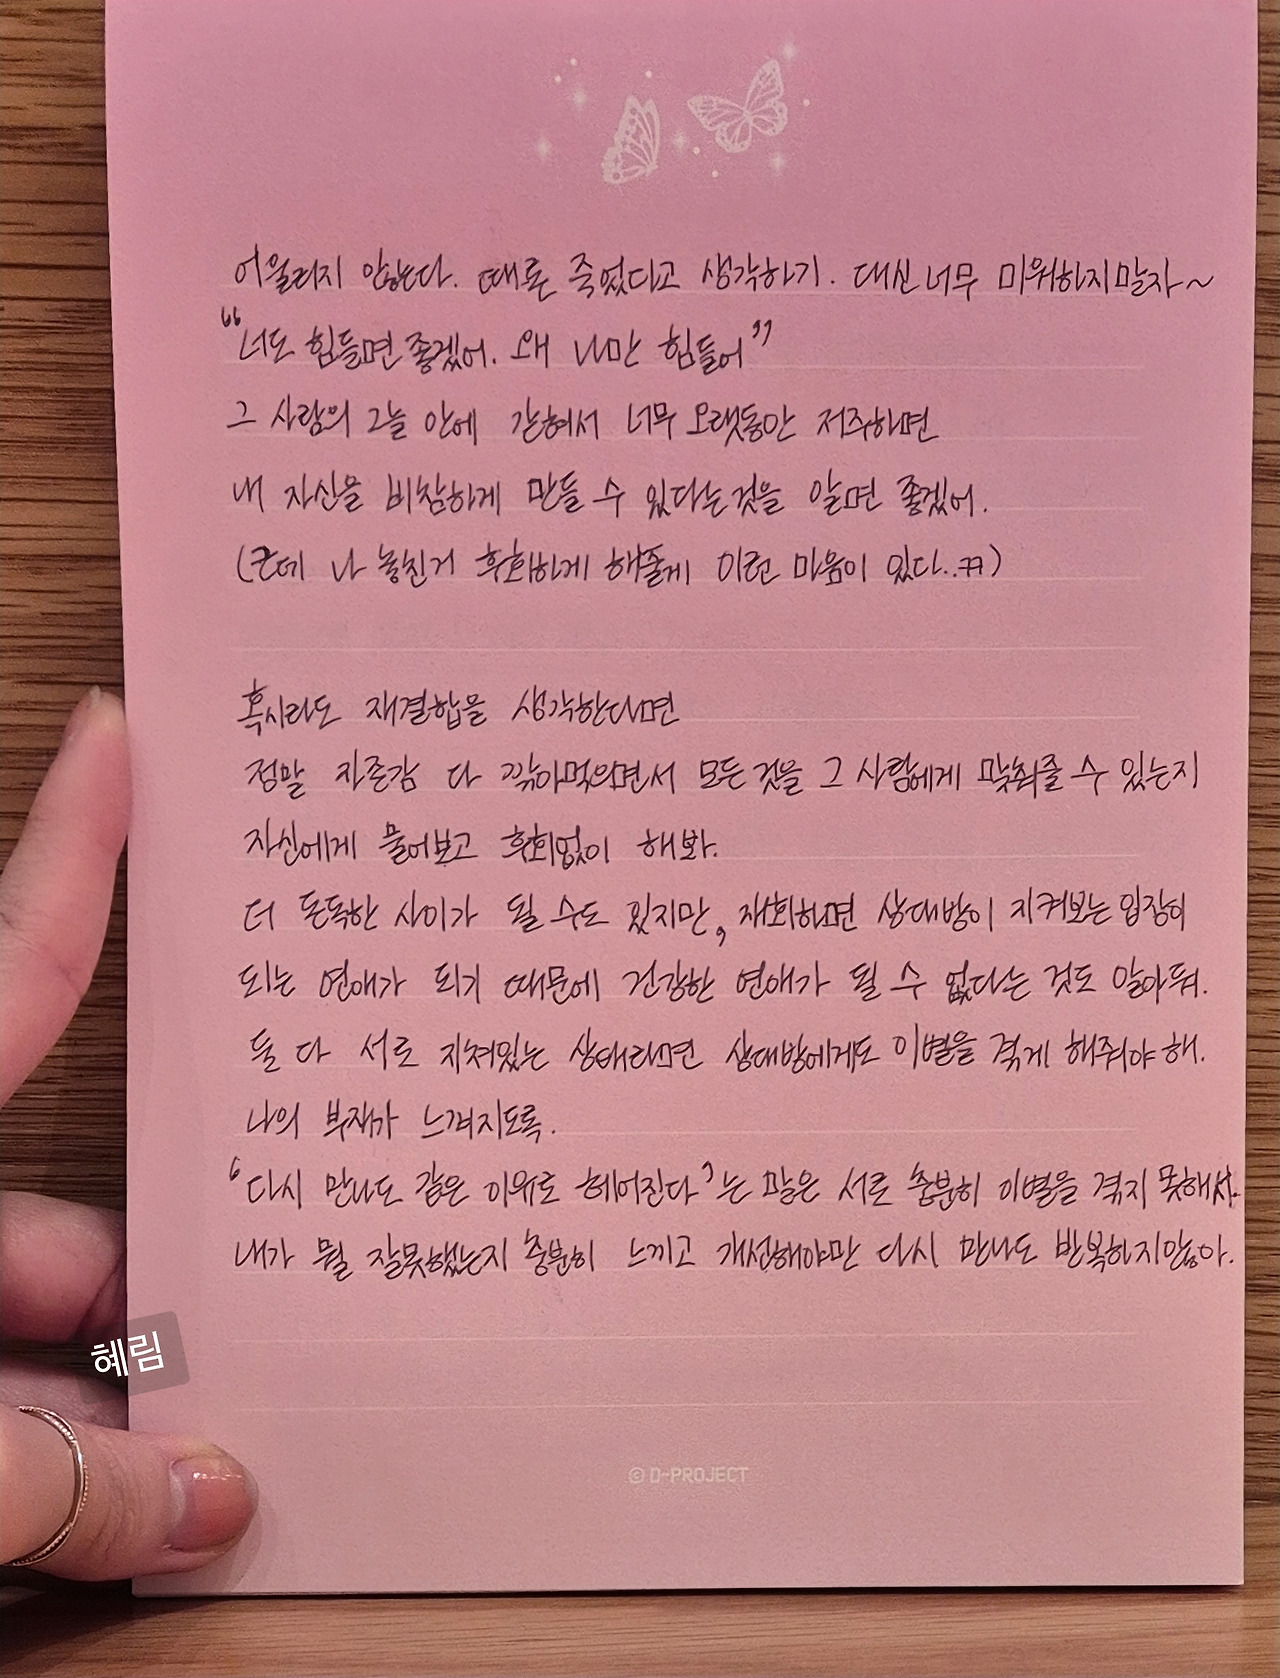 어울리지 않는다. 때론 죽었다고 생각하기. 대신 너무 미워하지말자~
"너도 힘들면 좋겠어. 왜 나만 힘들어"
그 사람의 그늘 안에 갇혀서 너무 오랫동안 저주하면
내 자신을 비참하게 만들 수 있다는 것을 알면 좋겠어.
(근데 나 놓친거 후회하게 해줄게 이런 마음이 있다..ㅋㅋ)
혹시라도 재결합을 생각한다면
정말 자존감 다 깎아먹으면서 모든 것을 그 사람에게 맞춰줄 수 있는지
자신에게 물어보고 후회없이 해봐.
더 돈독한 사이가 될 수도 있지만, 재회하면 상대방이 지켜보는 입장이
되는 연애가 되기 때문에 건강한 연애가 될 수 없다는 것도 알아둬.
둘 다 서로 지쳐있는 상태라면 상대방에게도 이별을 겪게 해줘야 해.
나의 부재가 느껴지도록.
'다시 만나도 같은 이유로 헤어진다'는 말은 서로 충분히 이별을 겪지 못해서.
내가 뭘 잘못했는지 충분히 느끼고 개선해야만 다시 만나도 반복하지않아.
혜림
© D-PROJECT